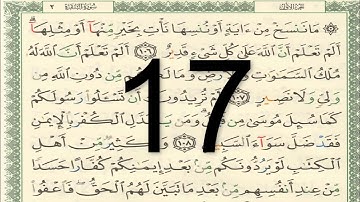 الجزء الأول سورة البقرة ٢
مَا نَنسَخْ مِنْ ءَايَةٍ أَوْ نُنسِهَا نَأْتِ بِخَيْرٍ مِّنْهَا أَوْ مِثْلِهَا
أَلَمْ تَعْلَمْ أَنَّ ٱللَّهَ عَلَىٰ كُلِّ شَىْءٍ قَدِيرٌ ١٠٦ أَلَمْ تَعْلَمْ أَنَّ ٱللَّهَ لَهُۥ
مُلْكُ ٱلسَّمَٰوَٰتِ وَٱلْأَرْضِ وَمَا لَكُم مِّن دُونِ ٱللَّهِ مِن
وَلِىٍّ وَلَا نَصِيرٍ ١٠٧ أَمْ تُرِيدُونَ أَن تَسْـَٔلُوا۟ رَسُولَكُمْ
كَمَا سُئِلَ مُوسَىٰ مِن وَمَن يَتَبَدَّلِ ٱلْكُفْرَ بِٱلْإِيمَٰنِ
فَقَدْ ضَلَّ سَوَآءَ ٱلسَّبِيلِ ١٠٨ كَثِيرٌ مِّنْ أَهْلِ
ٱلْكِتَٰبِ لَوْ يَرُدُّونَكُم مِّنۢ بَعْدِ إِيمَٰنِكُمْ كُفَّارًا حَسَدًا
مِّنْ عِندِ أَنفُسِهِم مِّنۢ بَعْدِ مَا تَبَيَّنَ لَهُمُ ٱلْحَقُّ فَٱعْفُوا۟
17